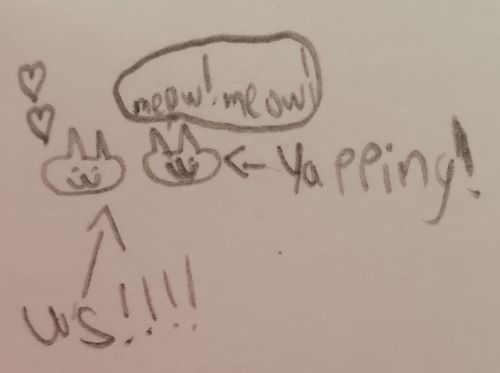 meow! meow!
Yapping!
us!!!!